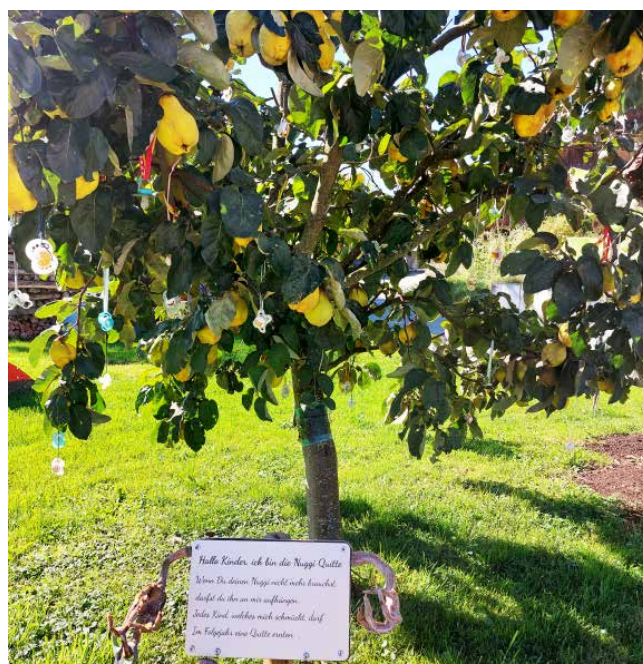 Hallo Kinder, ich bin die Nuggi Quitte
Wenn Du deinen Nuggi nicht mehr brauchst,
darfst du ihn an mir aufhängen.
Jedes Kind, welches mich schmückt, darf
Im Folgejahr eine Quitte ernten.